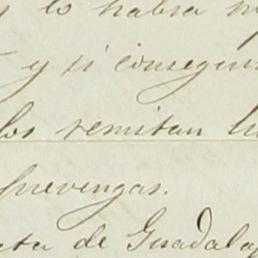 lo habia
y si consegui
los remitan
prevengas.
de Guadala